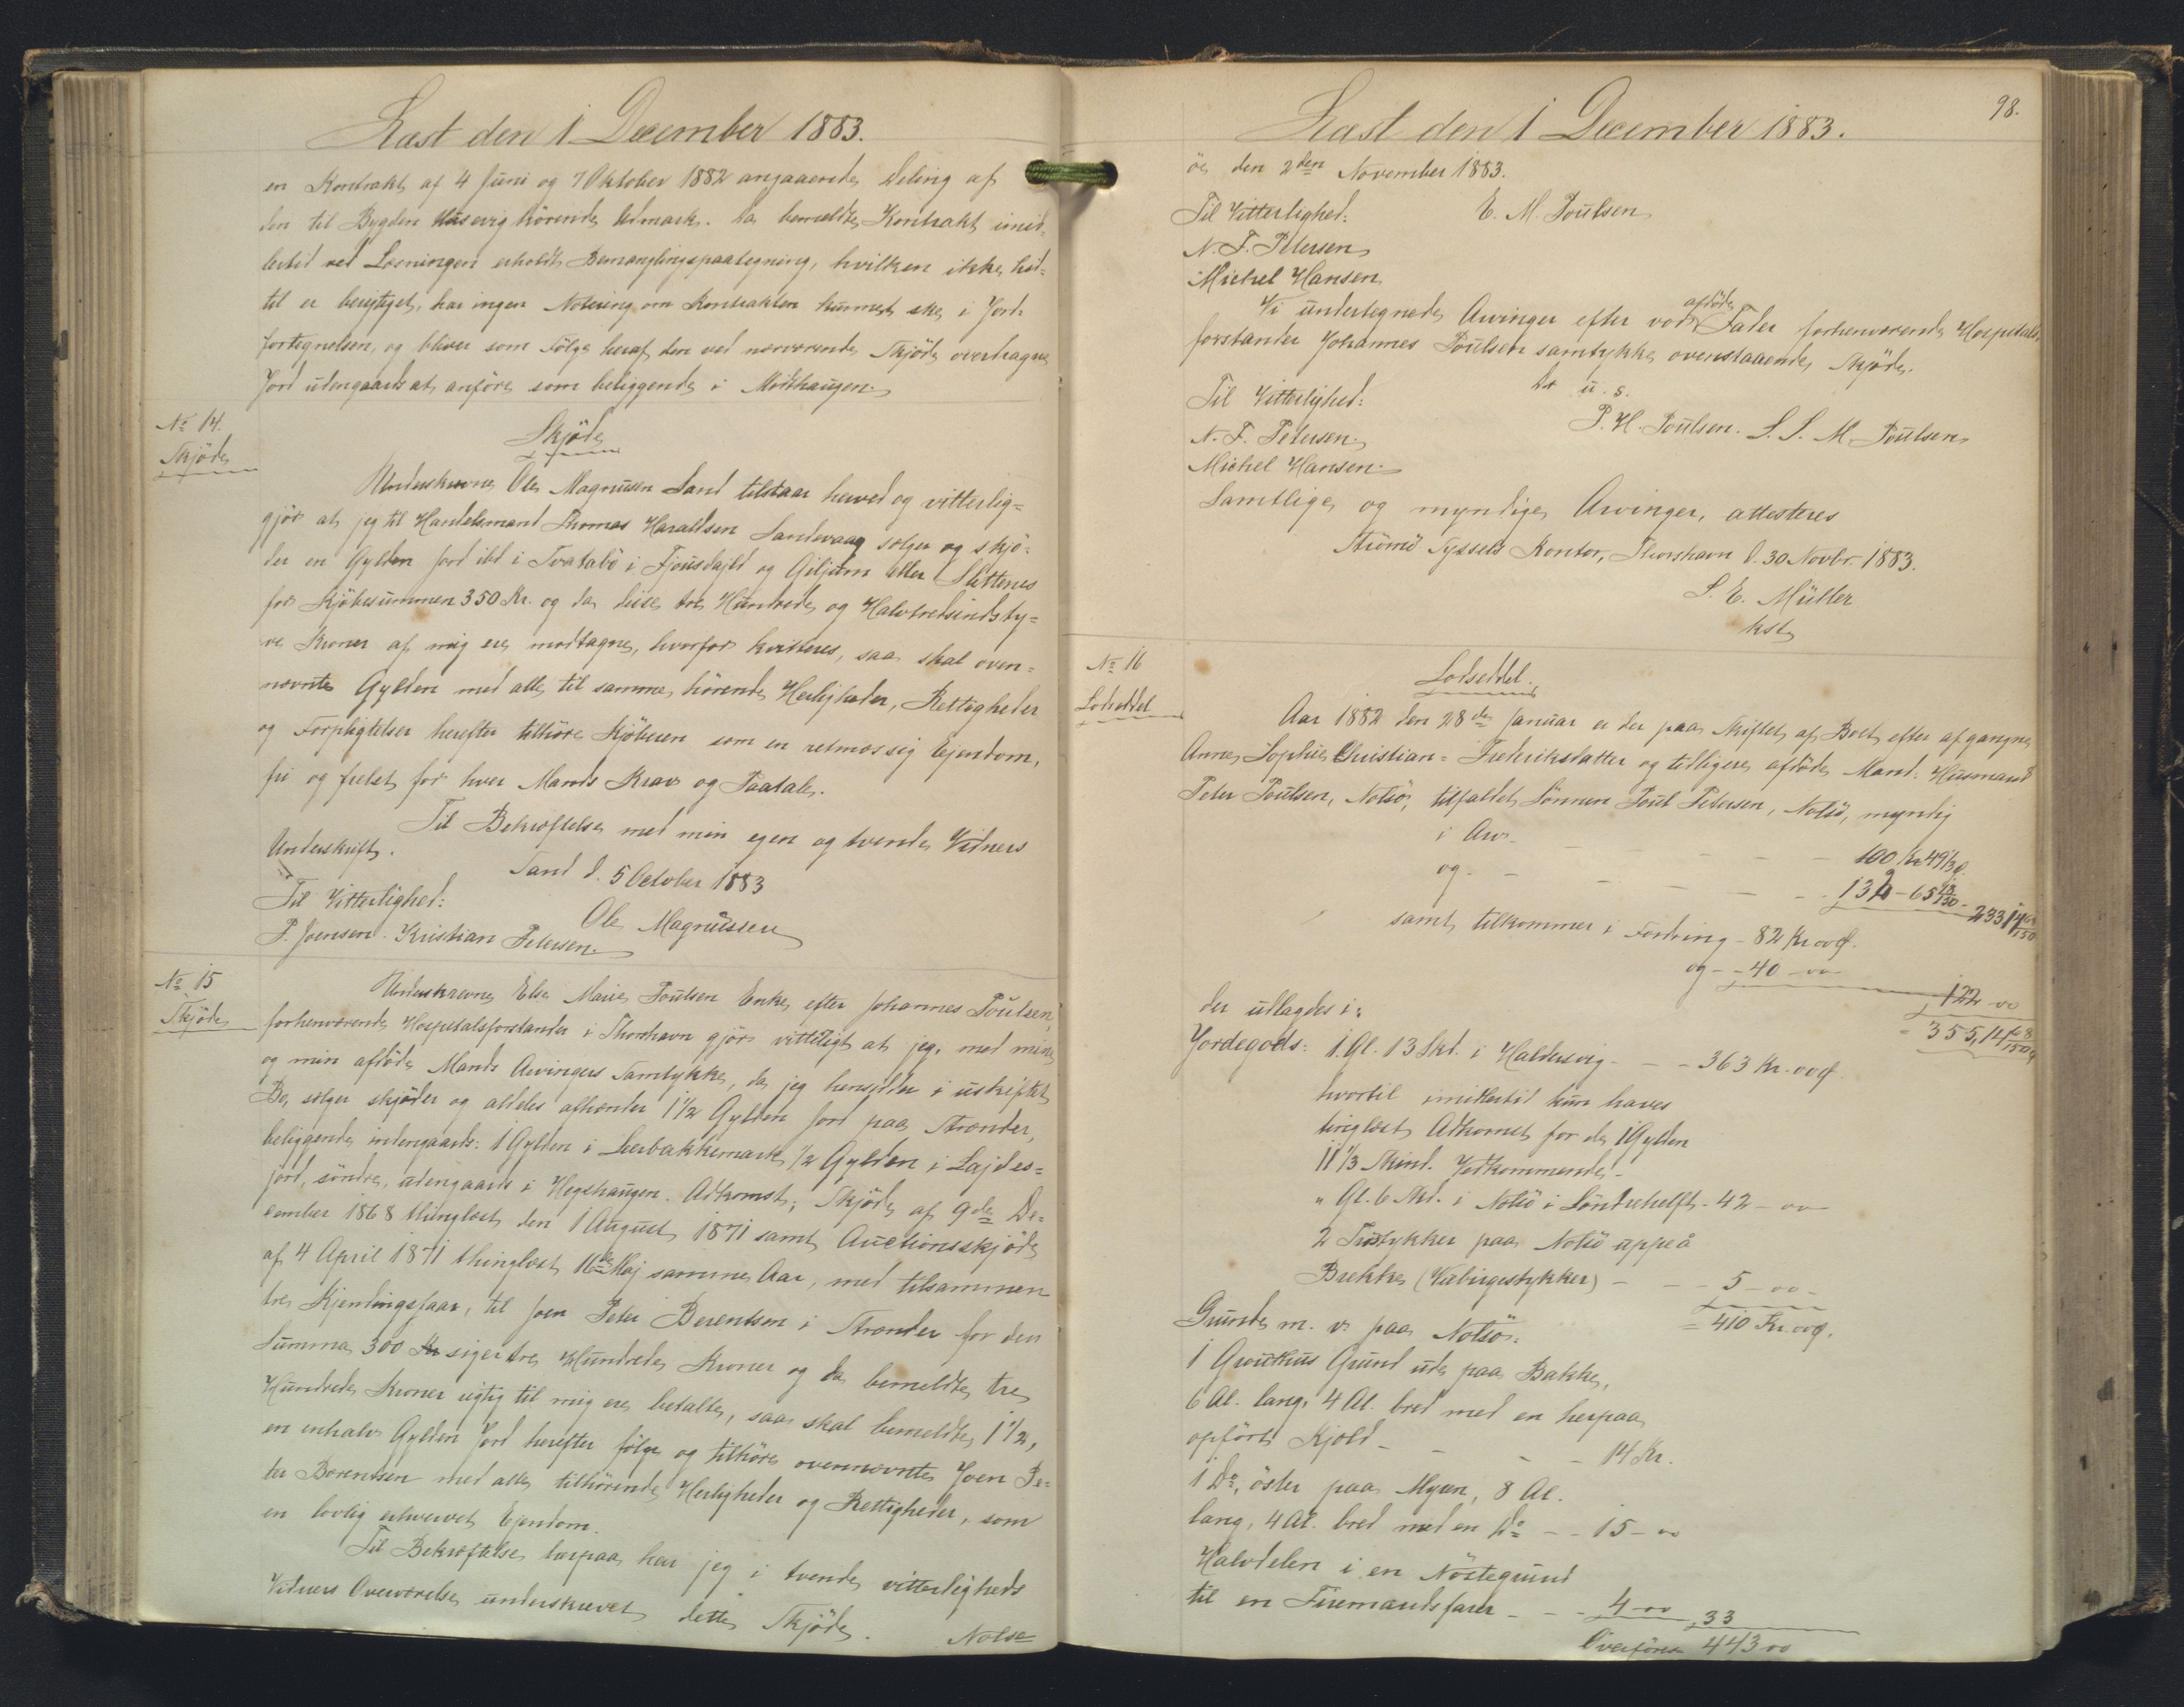 Læst den 1 December 1883.
en Kontrakt af 4 Juni og 7 Oktober 1882 angaaende Deling af
den til Bygden Husevig hørende Udmark. Da bemeldte Kontrakt imid-
lertid ved Læsningen erholdt Bemanglingspaategning, hvilken ikke hid-
til er berigtiget, har ingen Notering om Kontrakten kunnet ske i Jord-
fortegnelsen, og bliver som Følge heraf den ved nærværende Skjøde overdragne
Jord udengaards at anføre som beliggende i
No 14.
Skjøde
Skjøde
Underskrevne Ole Magnusen Sand tilstaar herved og vitterlig-
gjør at jeg til Handelsmand Thomas Haraldsen Sandevaag sælger og skjø-
der en Gylden Jord ibd i Traðabø i Fjousdajld og Giljum eller Slettenes
for Kjøbesummen 350 Kr. og da disse tre Hundrede og Halvtredsindsty-
ve Kroner af mig ere modtagne, hvorfor kvitteres, saa skal oven-
nævnte Gylden med alle til samme hørende Herligheder, Rettigheder
og Forpligtelser herefter tilhøre Kjøberen som en retmæssig Ejendom,
fri og frelst for hver Mands Krav og Paatale.
Til Bekræftelse med min egen og tvende Vidners
Underskrift.
Sand d. 5 October 1883
Til Vitterlighed:
Ole Magnussen
P. Joensen. Kristian Petersen.
No 15
Skjøde
Underskrevne Else Marie Poulsen Enke efter Johannes Poulsen,
forhenværende Hospitalsforstander i Thorshavn gjør vitterligt at jeg, med mine
og min afdøde Mands Arvingers Samtykke, da jeg hensidder i uskiftet
Bo, sælger skjøder og aldeles afhænder 1 1/2 Gylden Jord paa Strænder,
beliggende indengaards: 1 Gylden i Leerbakkemark 1/2 Gylden i Lajdes-
jord, søndre, udengaards i Hegshaugen. Adkomst; Skjøde af 9de De-
cember 1868 thinglæst den 1 August 1871 samt Auctionsskjøde
af 4 April 1871 thinglæst 11te Maj samme Aar, med tilsammen
tre Kjendingsfaar, til Joen Peter Berentsen i Strænder for den
Summa 300 Kr siger tre Hundrede Kroner og da bemeldte tre
Hundrede Kroner rigtig til mig ere betalte, saa skal bemeldte 1 1/2,
en enhalv Gylden Jord herefter følge og tilhøre ovennævnte Joen Pe-
ter Berentsen med alle tilhørende Herligheder og Rettigheder, som
en lovlig erhvervet Ejendom.
Til Bekræftelse herpaa har jeg i tvende vitterligheds
Vidners Overværelse underskrevet dette Skjøde.
Nolsø
98.
Læst den 1 December 1883.
øe den 2den November 1883.
Til Vitterlighed:
E. M. Poulsen
N. F. Petersen
Michel Hansen
Vi undertegnede Arvinger efter vor afdøde Fader forhenværende Hospitals-
forstander Johannes Poulsen samtykke ovenstaaende Skjøde.
D. u. s.
Til Vitterlighed:
P. H. Poulsen. S. S. M. Poulsen
N. F. Petersen.
Michel Hansen.
Samtlige og myndige Arvinger, attesteres
Strømø Syssels Kontor, Thorshavn d. 30 Novbr. 1883.
S. E. Müller
kst
No 16
Lodseddel
Lodseddel.
Aar 1882 den 28de Januar er der paa Skiftet af Boet efter afgangne
Anne Sophie Christian-Frederiksdatter og tidligere afdøde Mand: Husmand
Peter Poulsen, Nolsø, tilfaldet Sønnen Poul Petersen, Nolsø, myndig
i Arv - - - - - 100 Kr 49 1/3 Ø.
og - - - - - 132 - 65 - 233 14
samt tilkommer i Fordring - 82 Kr 00 Ø.
og - - 40 - 00
122 00
355,14 68/150
der udlagdes i:
Jordegods: 1 Gl. 13 Skd. i Haldersvig - - - 363 Kr. 00 Ø
hvortil imidlertid kun haves
tinglæst Adkomst for de 1 Gylden
11 1/3 Skind. Vedkommende -
" Gl. 6 Skd. i Nolsø i Søndrehelft - 42 - 00
2 Tristykker paa Nolsø uppe á
Brekke (Kaabirgestykker) - - - 5 - 00 -
= 410 Kr. 00 Ø.
Grunde m. v. paa Nolsø:
1 Grouthus Grund ude paa Bakke,
6 Al. lang, 4 Al. bred med en herpaa
opført Kjold - - - 14 Kr.
1 Do, øster paa Myren, 8 Al.
lang, 4 Al. bred med en Do - - 15 - 00
Halvdelen i en Nøstegrund
til en Firemandsfarer - - - 4 - 00 33
Overføres 443 00